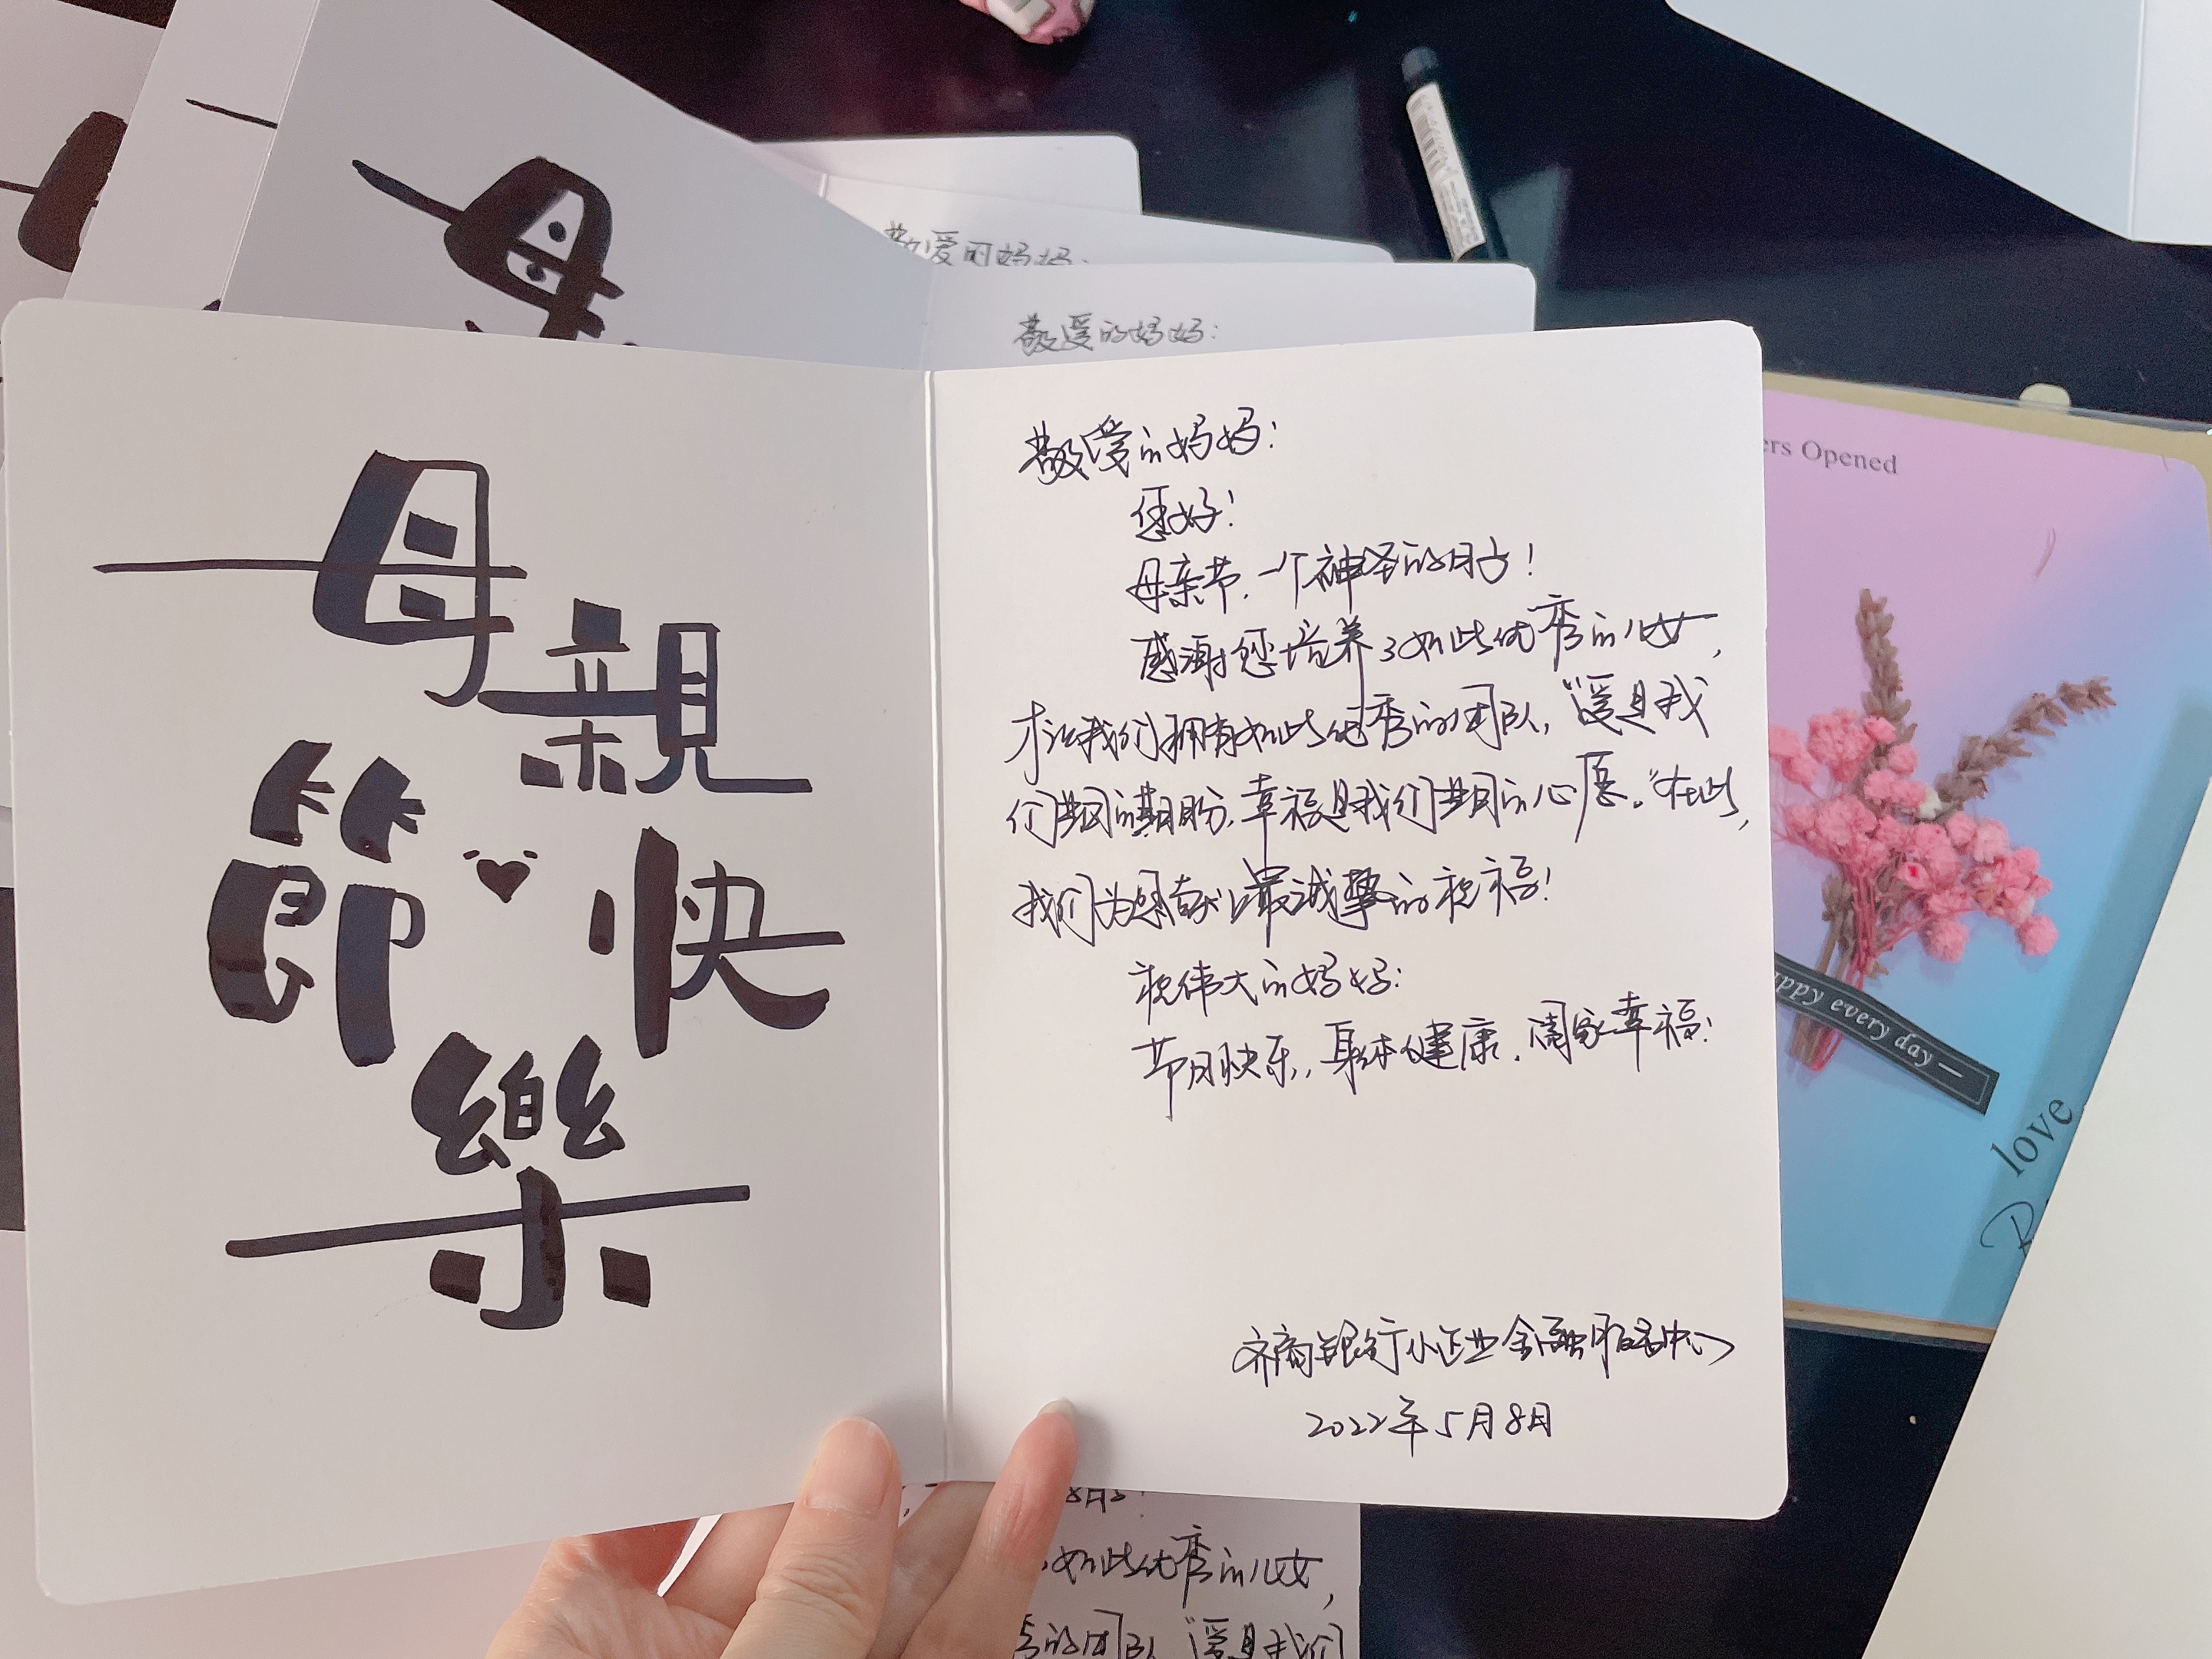 母
親
節
快
樂
敬爱的妈妈:
敬爱的妈妈:
敬爱的妈妈:
您好!
母亲节,一个神圣的日子!
感谢您培养了如此优秀的儿女,
才让我们拥有如此优秀的团队,“爱是我
们共同的期盼,幸福是我们共同的心愿。”在此,
我们为您献上最诚挚的祝福!
祝伟大的妈妈:
节日快乐,身体健康,阖家幸福!
齐商银行小企业金融服务中心
2022年5月8日
如此优秀的儿女,
秀的团队,“爱是我们
ers Opened
appy every day —
love